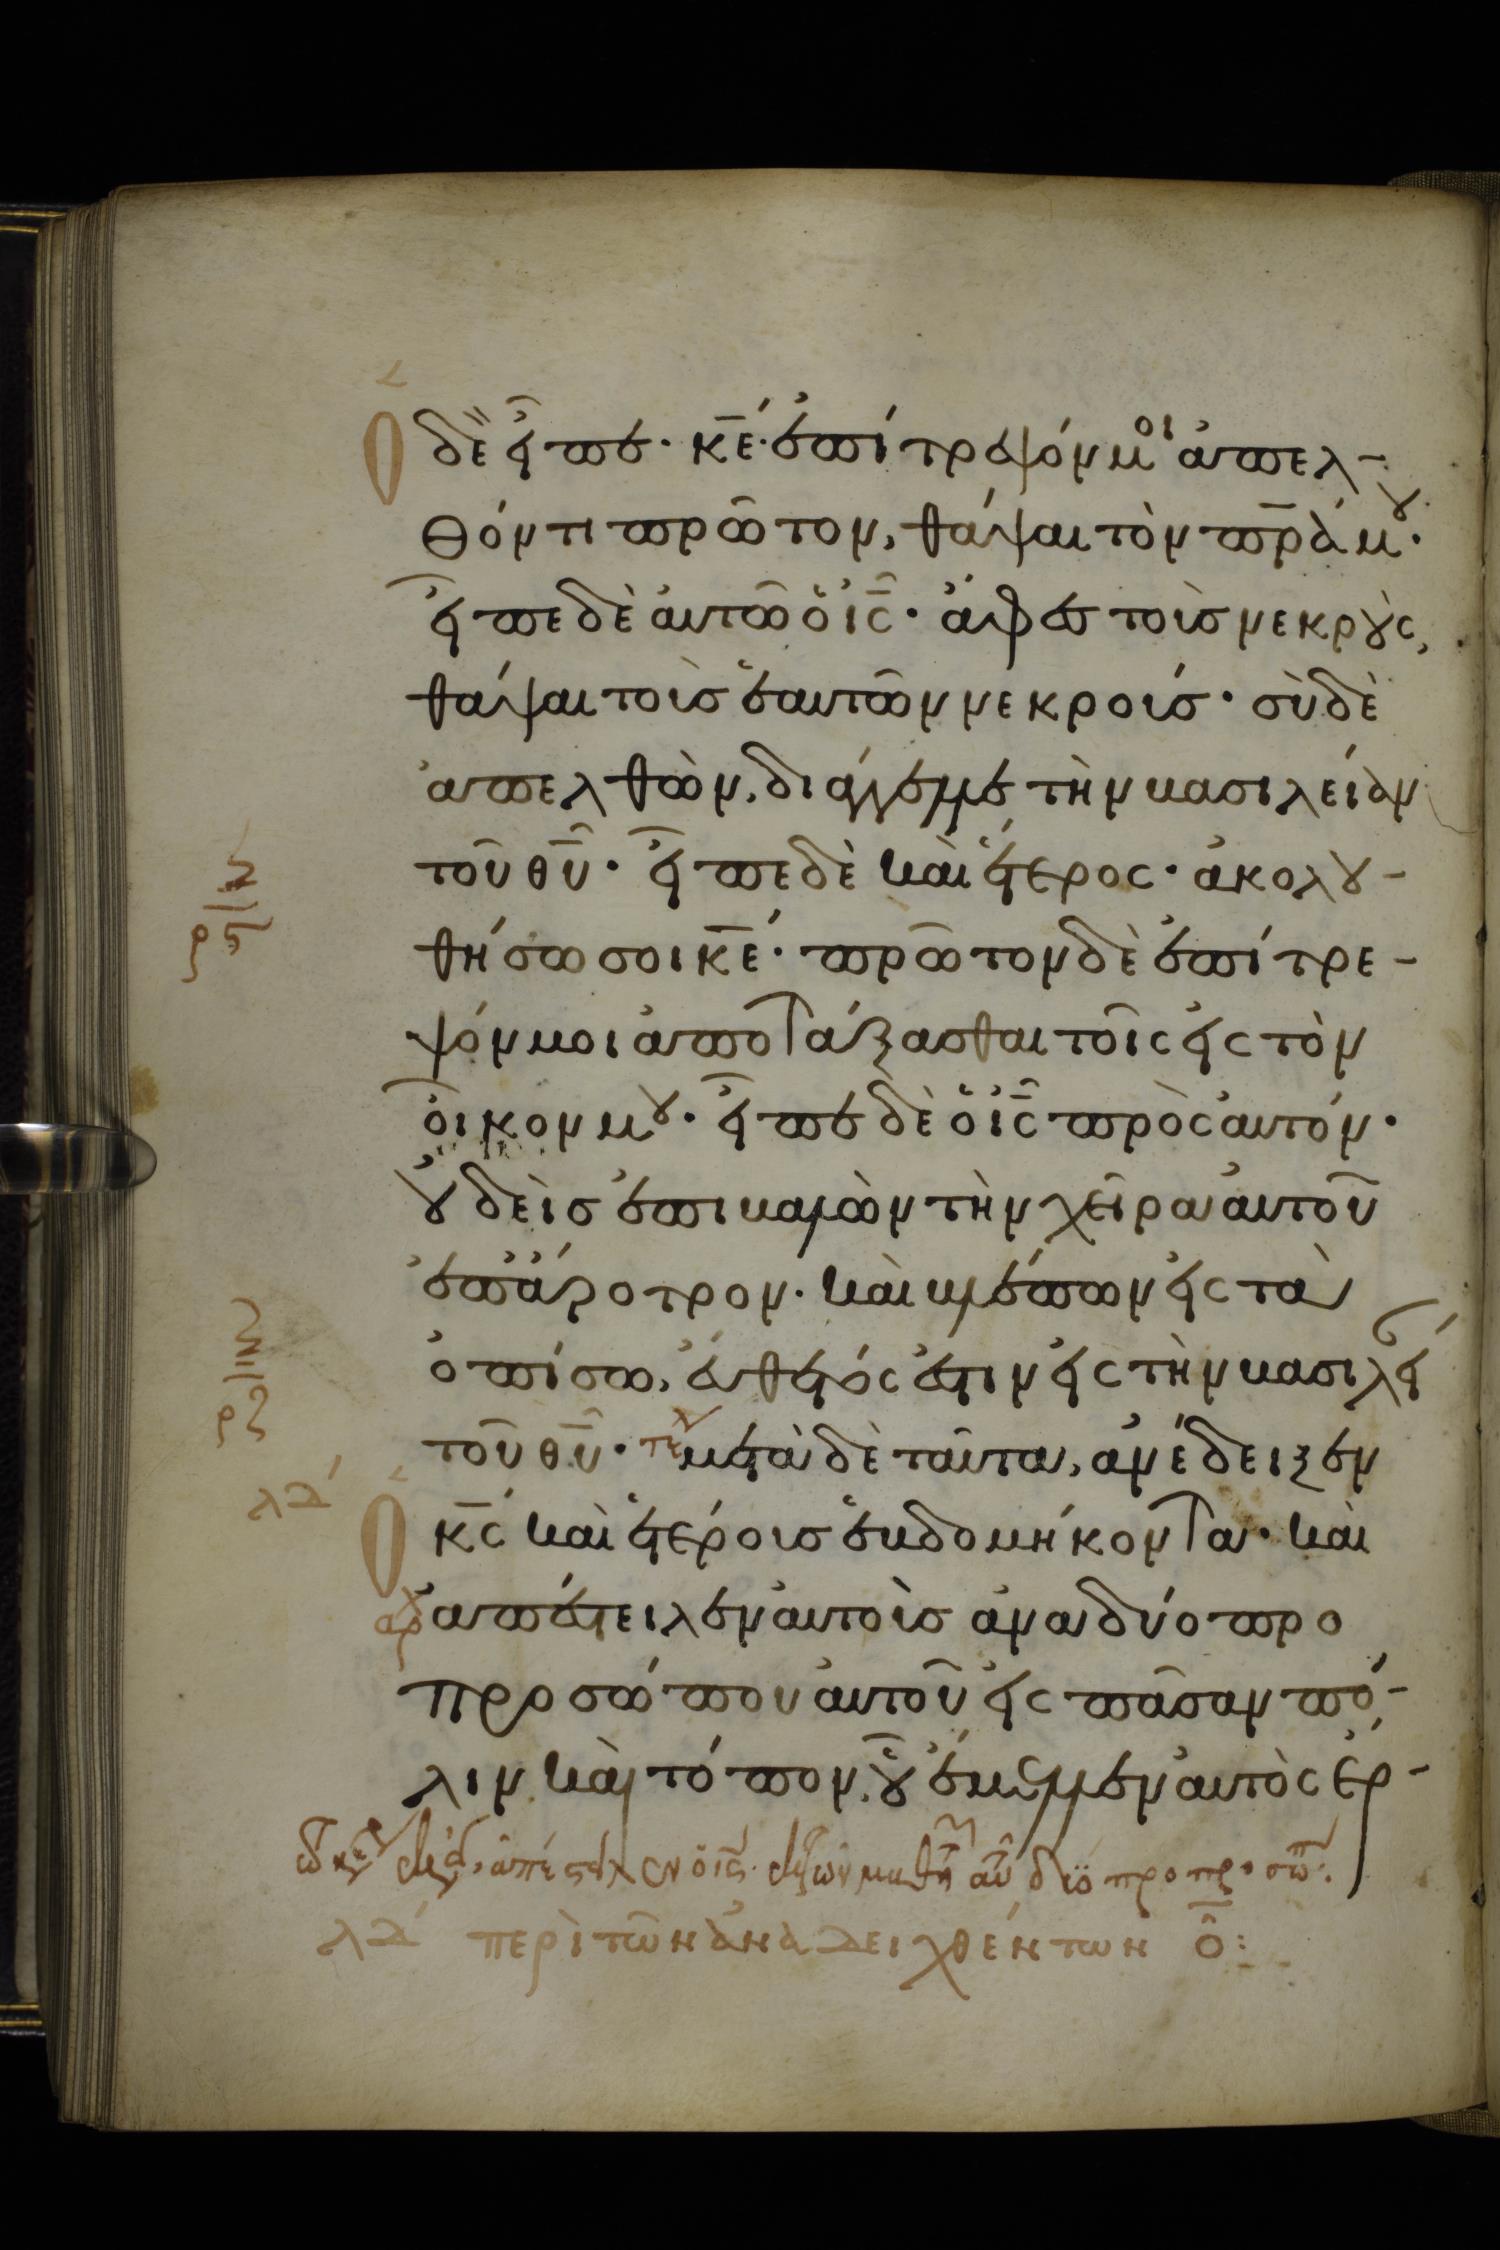 Ὁ δὲ εἶπε· κ̅ε̅· ἐπίτρεψόν μοι ἀπελ-
θόντι πρῶτον, θάψαι τὸν π̅ρ̅α̅ μου·
εἶπε δὲ αὐτῶ ὁ ι̅ς̅· ἄφες τοὺς νεκροὺς,
θάψαι τοὺς ἑαυτῶν νεκρούς· σὺ δὲ
ἀπελθὼν, διάγγελλε τὴν βασιλείαν
τοῦ θ̅υ̅· εἶπε δὲ καὶ ἕτερος· ἀκολου-
θήσω σοι κ̅ε̅· πρῶτον δὲ ἐπίτρε-
ψόν μοι ἀποτάξασθαι τοῖς εἰς τὸν
οἶκον μου· εἶπε δὲ ὁ ι̅ς̅ πρὸς αὐτόν·
οὐδεὶς ἐπιβαλὼν τὴν χεῖρα αὐτοῦ
ἐπ' ἄροτρον· καὶ βλέπων εἰς τὰ
ὀπίσω, εὔθετός ἐστιν εἰς τὴν βασιλεί
τοῦ θ̅υ̅· τε μετὰ δὲ ταῦτα, ἀνέδειξεν
ὁ κ̅ς̅ καὶ ἑτέρους ἑβδομήκοντα· καὶ
ἀρχ ἀπέστειλεν αὐτοὺς ἀνα δύο προ
προσώπου αὐτοῦ εἰς πᾶσαν πό-
λιν καὶ τόπον, οὗ ἔμελλεν αὐτὸς ἔρ-
ἀπέστειλεν ὁ ι̅ς̅ μαθη αυ δύο προ προσώπ:
λδ περὶ τῶν ἀναδειχθέντων ο̅:
λδ